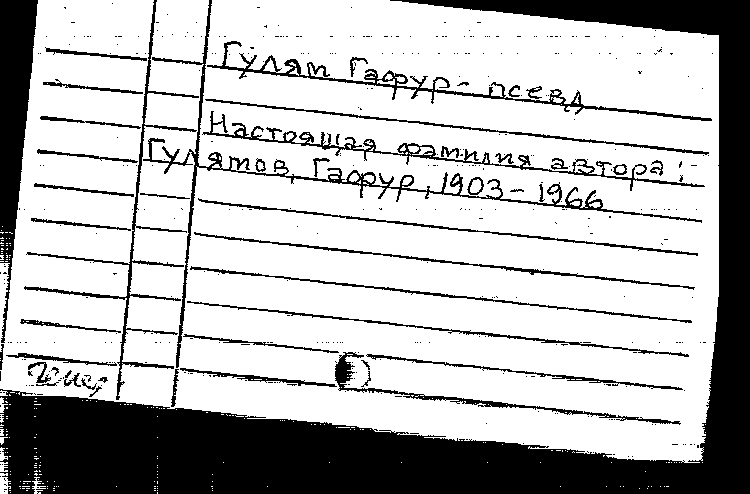 Гулям Гафур - псевд
Настоящая фамилия автора:
Гулямов, Гафур, 1903 - 1966